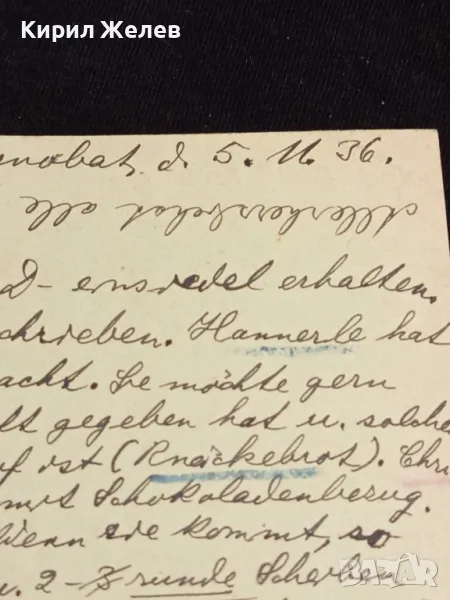 Кирил Желев
d. 5. 11. 36.
alle
D- einsiedel erhalten.
chrieben. Hannerle hat
acht. Se möchte gern
lt gegeben hat u. solche
f ist (Knäckebrot). Chri
mit Schokoladenbezug.
Wenn sie kommt, so
u. 2 - runde Scherben
BAZAR